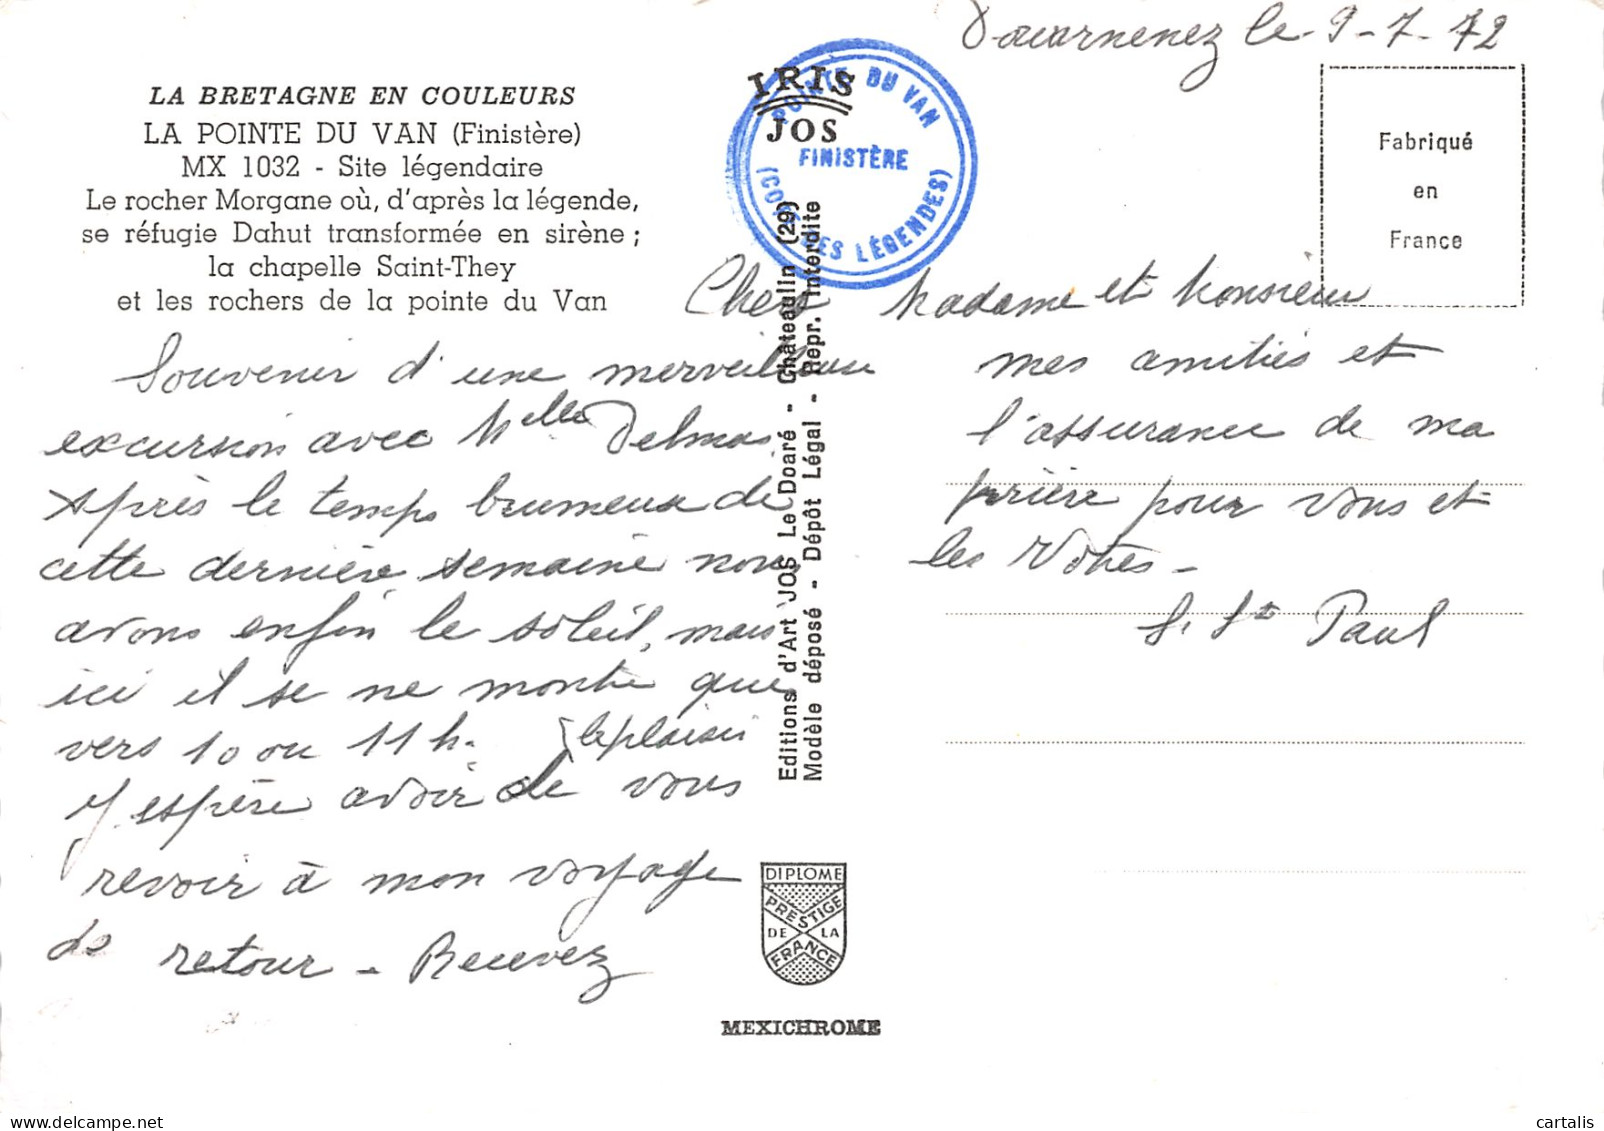 Douarnenez le 9-7-72
LA BRETAGNE EN COULEURS
LA POINTE DU VAN (Finistère)
MX 1032 - Site légendaire
Le rocher Morgane où, d'après la légende,
se réfugie Dahut transformée en sirène ;
la chapelle Saint-They
et les rochers de la pointe du Van
IRIS
JOS
POINTE DU VAN
FINISTÈRE
(COTE DES LÉGENDES)
Fabriqué
en
France
Chers Madame et Monsieur
Souvenir d'une merveilleuse
excursion avec Melle Delmas
Après le temps brumeux de
cette dernière semaine nous
avons enfin le soleil, mais
ici il se ne montre que
vers 10 ou 11 h.
le plaisir
J'espère avoir de vous
revoir à mon voyage
de retour - Recevez
mes amitiés et
l'assurance de ma
prière pour vous et
les Vôtres -
S. St Paul
Editions d'Art JOS Le Doaré - Châteaulin (29)
Modèle déposé - Dépôt Légal - Repr. Interdite
DIPLOME
PRESTIGE
DE LA
FRANCE
MEXICHROME
cartalis